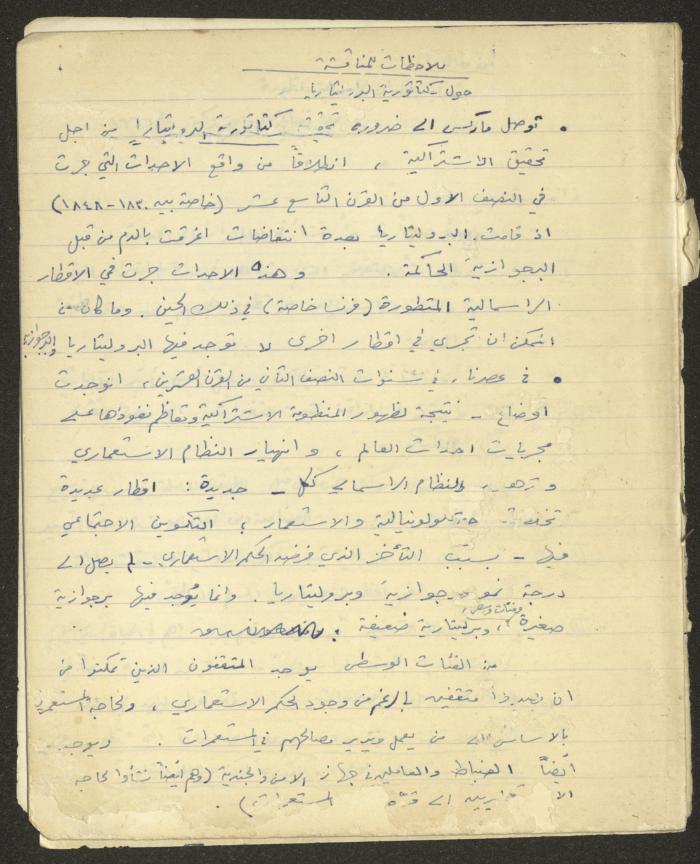 ملاحظات للمناقشة
حول دكتاتورية البروليتاريا
• توصل ماركس الى ضرورة دكتاتورية البروليتاريا من اجل
تحقيق الاشتراكية ، انطلاقاً من واقع الاحداث التي جرت
في النصف الاول من القرن التاسع عشر (خاصة بين ١٨٣٠-١٨٤٨)
اذ قامت البروليتاريا بعدة انتفاضات اغرقت بالدم من قبل
البرجوازية الحاكمة . وهذه الاحداث جرت في الاقطار
الراسمالية المتطورة (فرنسا خاصة) في ذلك الحين . وما كان من
الممكن ان تجري في اقطار اخرى لا توجد فيها البروليتاريا والبرجوازية
• في عصرنا ، في سنوات النصف الثاني من القرن العشرين ، انوجدت
اوضاع - نتيجة لظهور المنظومة الاشتراكية وتعاظم نفوذها على
مجريات احداث العالم ، وانهيار النظام الاستعماري
وتدهور النظام الراسمالي ككل - جديدة : اقطار عديدة
الكولونيالية والاستعمار ، التكوين الاجتماعي
فيها - بسبب التأخر الذي فرضه الحكم الاستعماري - لم يصل الى
درجة نمو برجوازية وبروليتاريا . وانما يُوجد فيها برجوازية
صغيرة وفئات وسطى ، وبروليتارية ضعيفة .
من الفئات الوسطى يوجد المثقفون الذين تمكنوا من
ان يصبحوا مثقفين بالرغم من وجود الحكم الاستعماري ، ولحاجة المستعمرين
بالاساس الى من يعمل ويدير مصالحهم في المستعمرات . ويوجد
أيضاً الضباط والعاملين في جهاز الامن والجندية (وهم ايضاً نشأوا لحاجة
الاستعماريين الى قوة المستعمرات) .